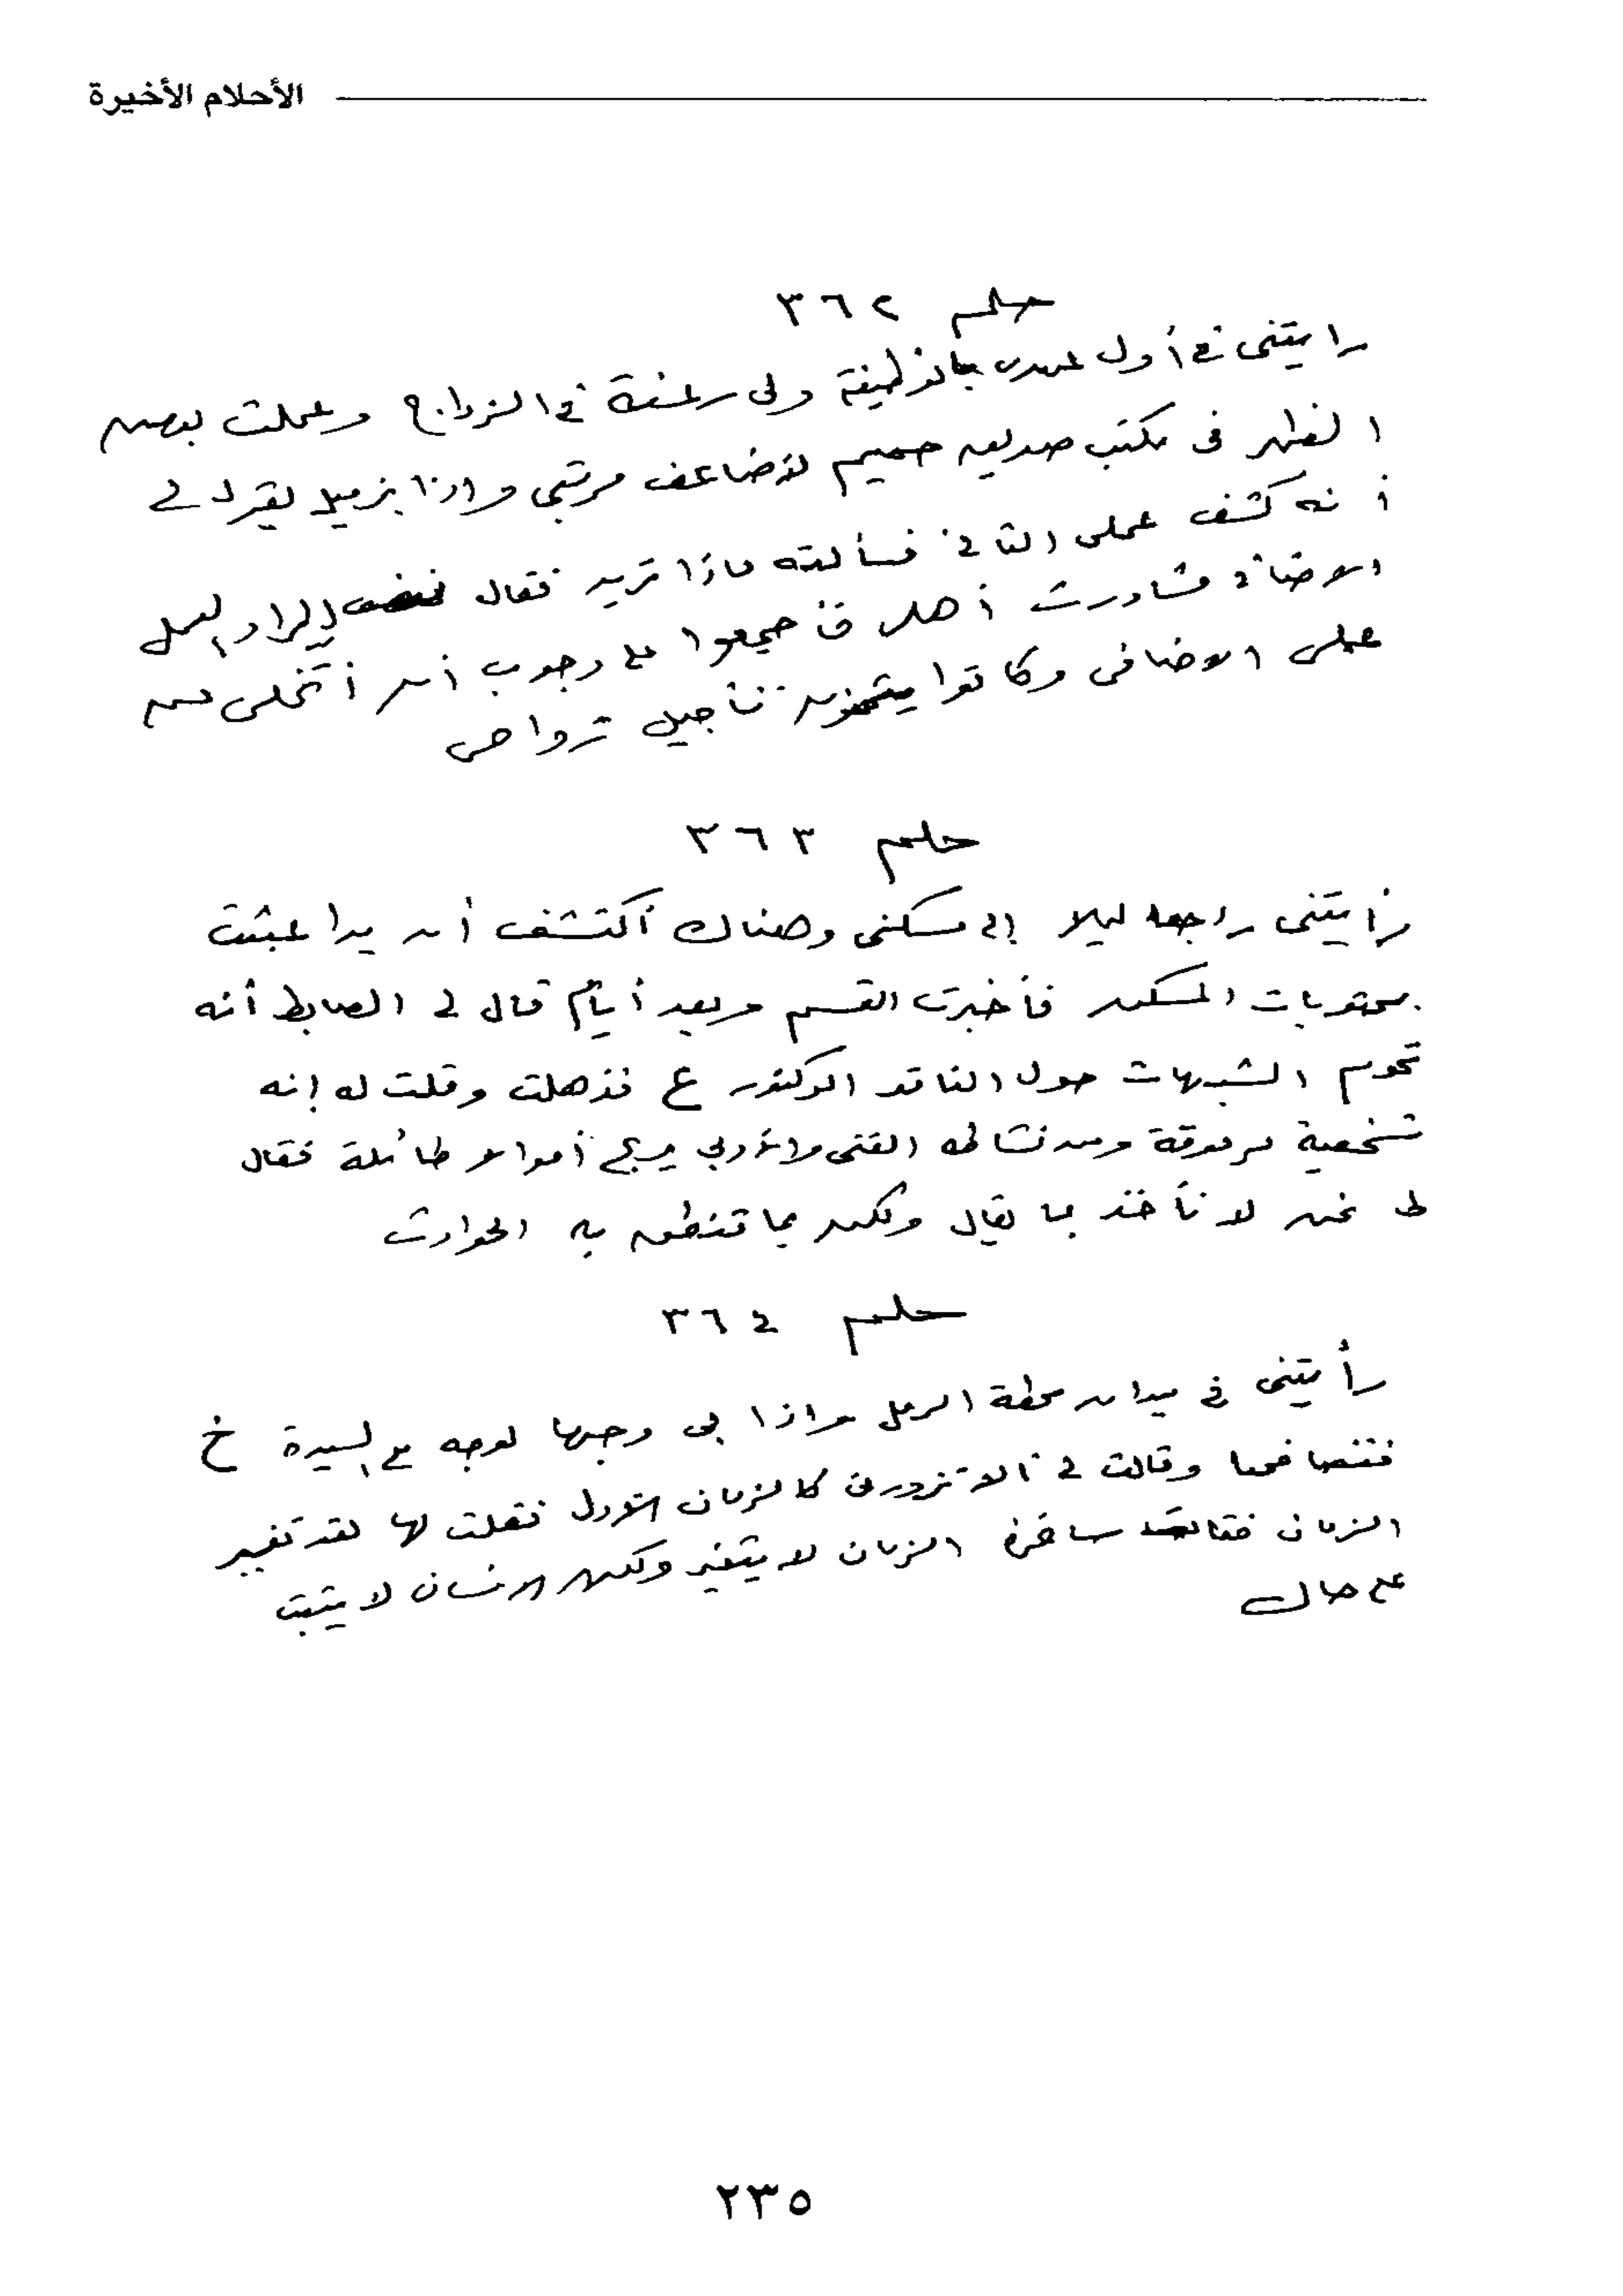 الأحلام الأخيرة
حلم ٣٦٢
رايتنى فى أول عهدى بالوظيفة ولى رغبة فى الزواج وعملت بعض
الظهر فى مكتب صديق حميم لأضاعف مرتبى واذا بزميل يقول لى
أنه كشف عملى الثانى فسألته ماذا تريد فقال نصف إيراد العمل
الاضافى فشاورت أهلى فأجمعوا على وجوب أن أتخلى عن
عملى الاضافى وكانوا تأجيل زواجى
حلم ٣٦٣
رأيتنى راجعا ليلا إلى مسكنى وهناك أكتشف أن يدا عبثت
بمحتويات المسكن فأخبرت القسم وبعد أيام قال لى الضابط أنه
تحوم الشبهات حول الناقد الدكتور ع فذهلت وقلت له إنه
شخصية مرموقة ومن نشاطه الفنى والأدبى يربح أموالا طائلة فقال
لى نحن لا نأخذ بما يقال ولكن بما تنطق به الحوادث
حلم ٣٦٤
رأيتنى فى ميدان محطة الرمل واذا بى وجها لوجه مع السيدة خ
فتصافحنا وقالت لى ألا تزورنى كالزمان الأول فقلت لها لقد تغير
الزمان فقالت ساخرة الزمان لا يتغير ولكن الانسان لا يثبت
على حال
٢٣٥